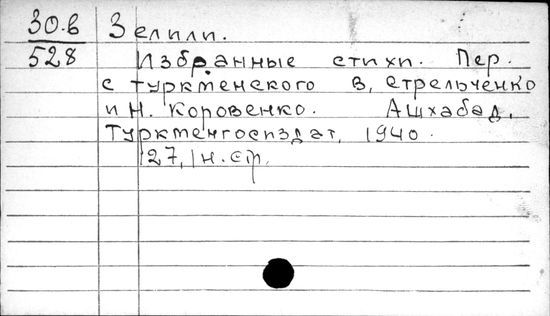 30.в Зелили.
528 Избранные стихи. Пер.
с туркменского В. Стрельченко
и Н. Коровенко. Ашхабад,
Туркменгосиздат, 1940.
127, 1 н. стр.